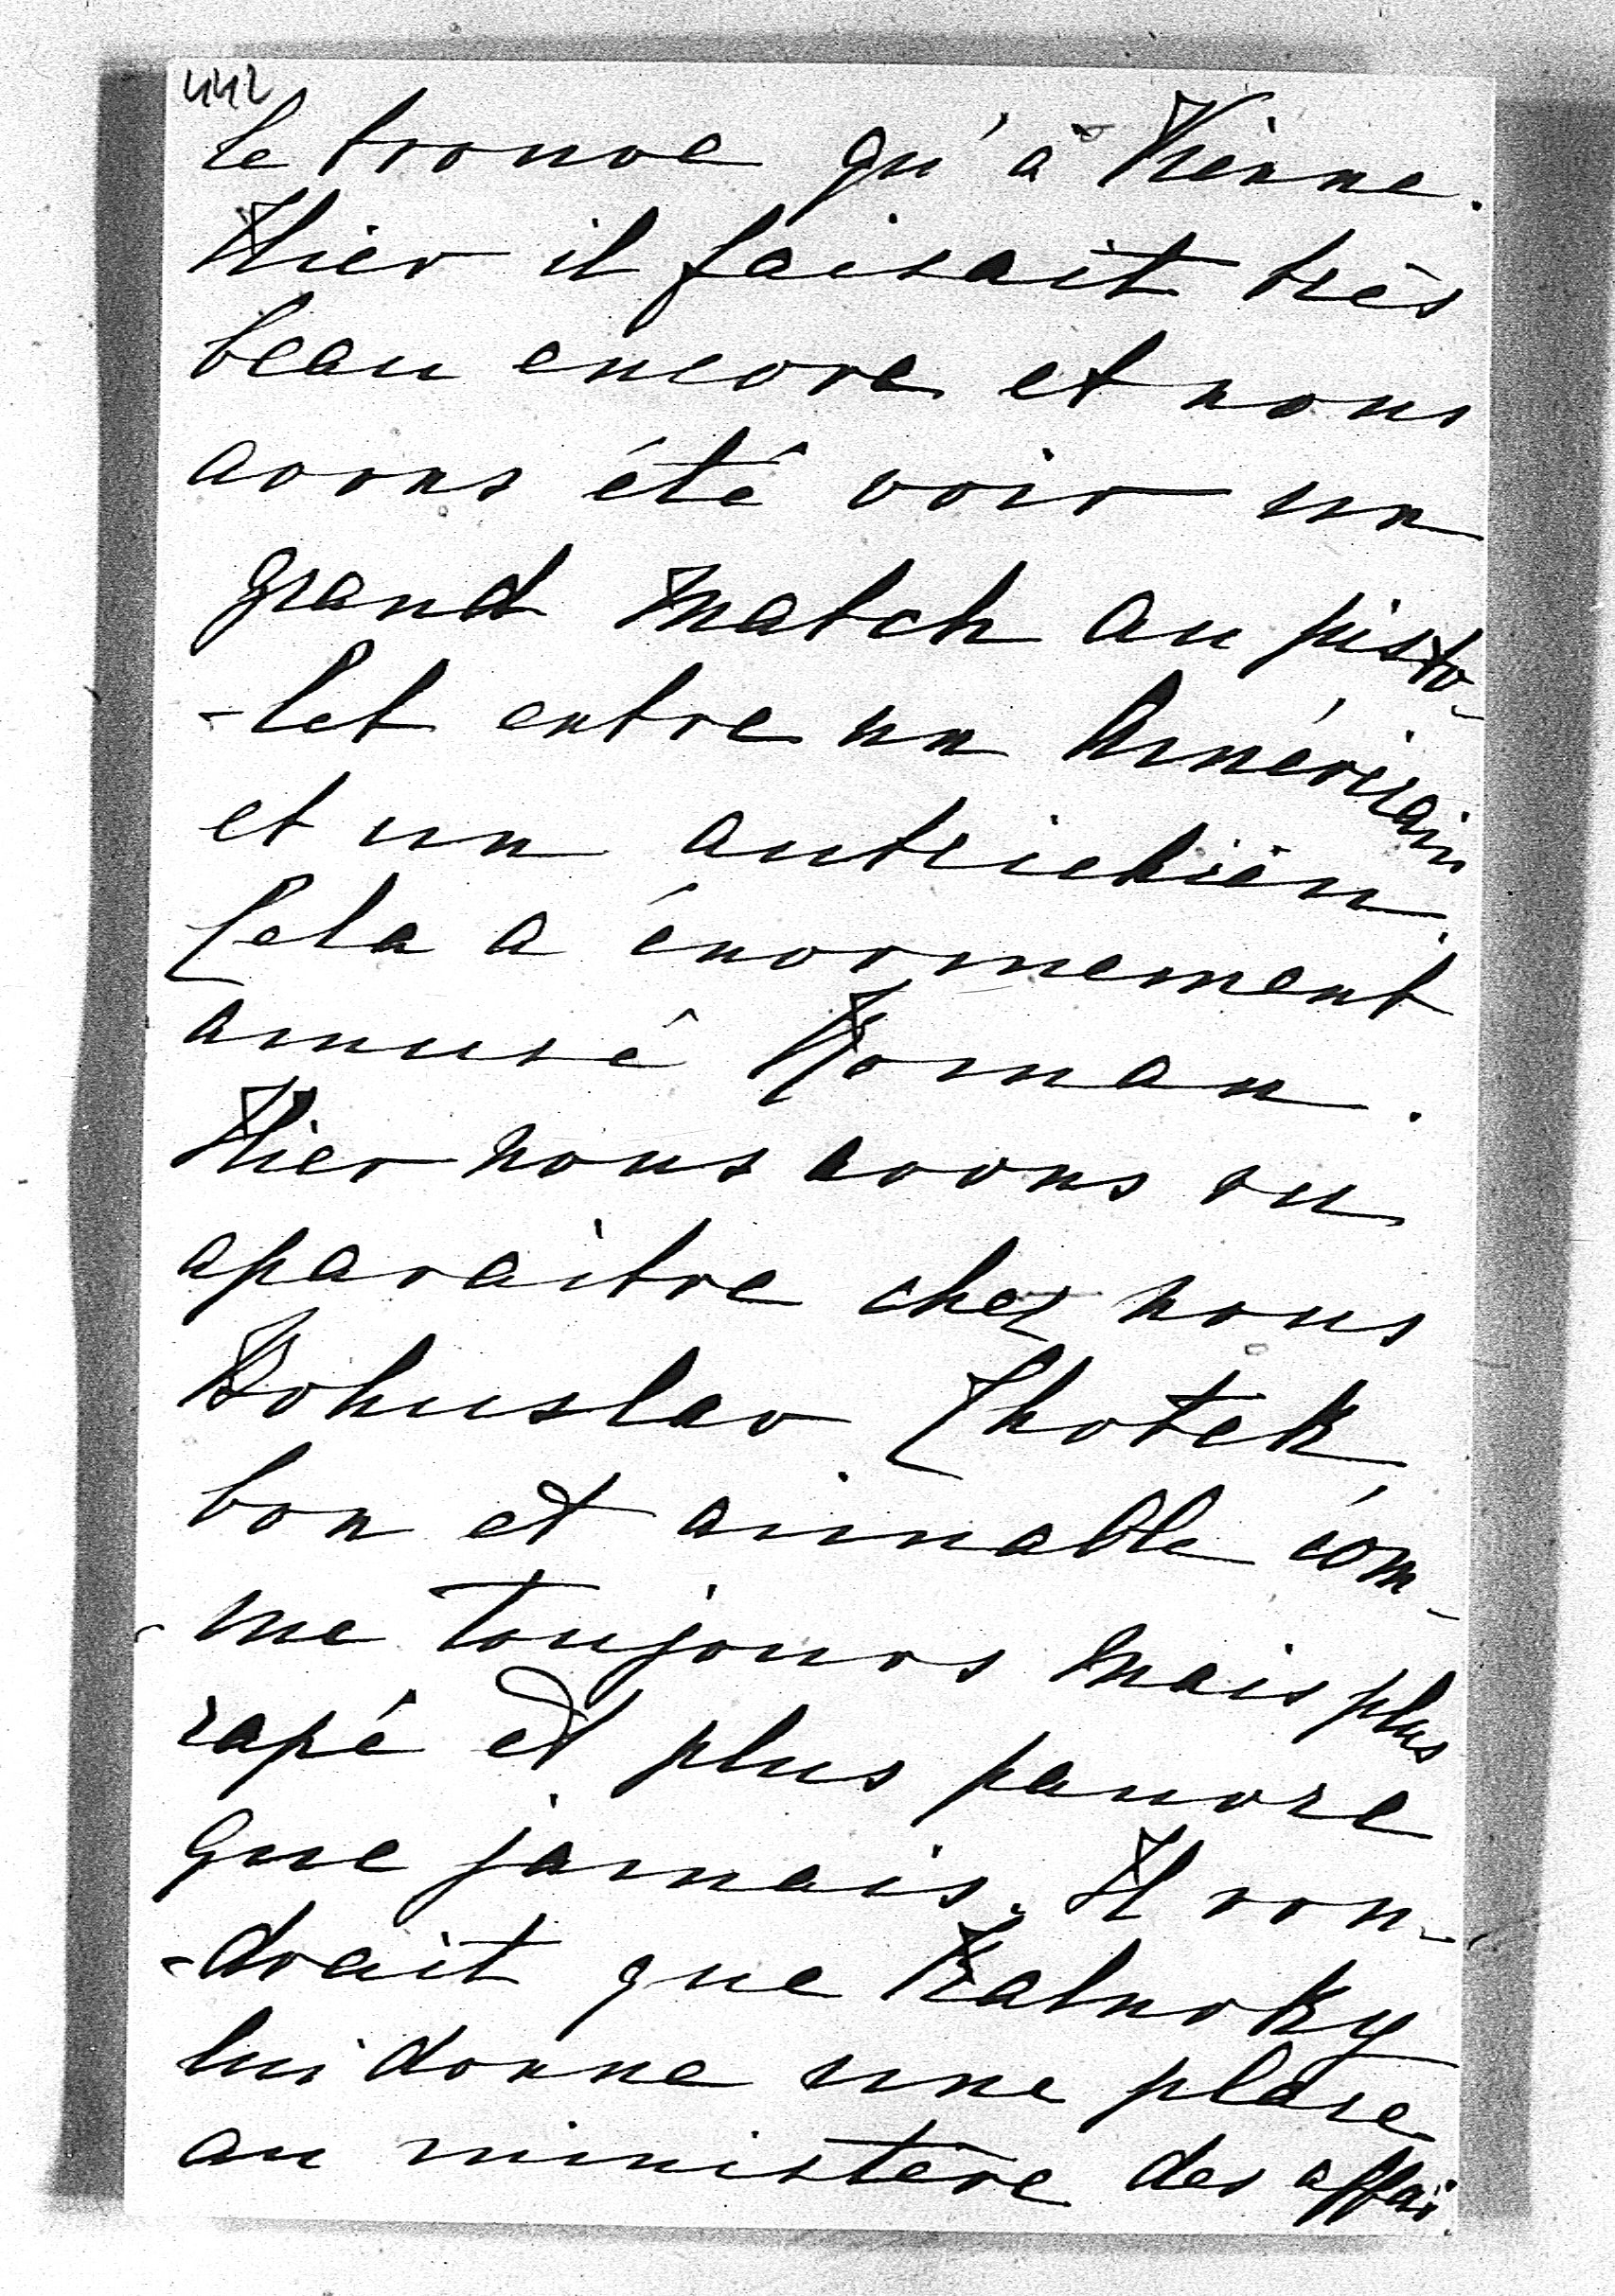 442
le trouve qu'à Vienne.
Hier il faisait très
beau encore et nous
avons été voir un
grand match au pisto-
-let entre un Américain
et un autrichien.
Cela a énormement
amusé Roman.
Hier nous avons vu
aparaitre chez nous
Bohuslav Chotek,
bon et aimable com-
-me toujours mais plus
rapé et plus pauvre
que jamais. Il vou-
-drait que Kalnoky
lui donne une place
au ministère des affai